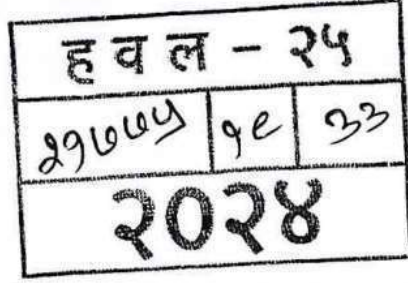 हवल - २५
२१७७५ १९ ३३
२०२४